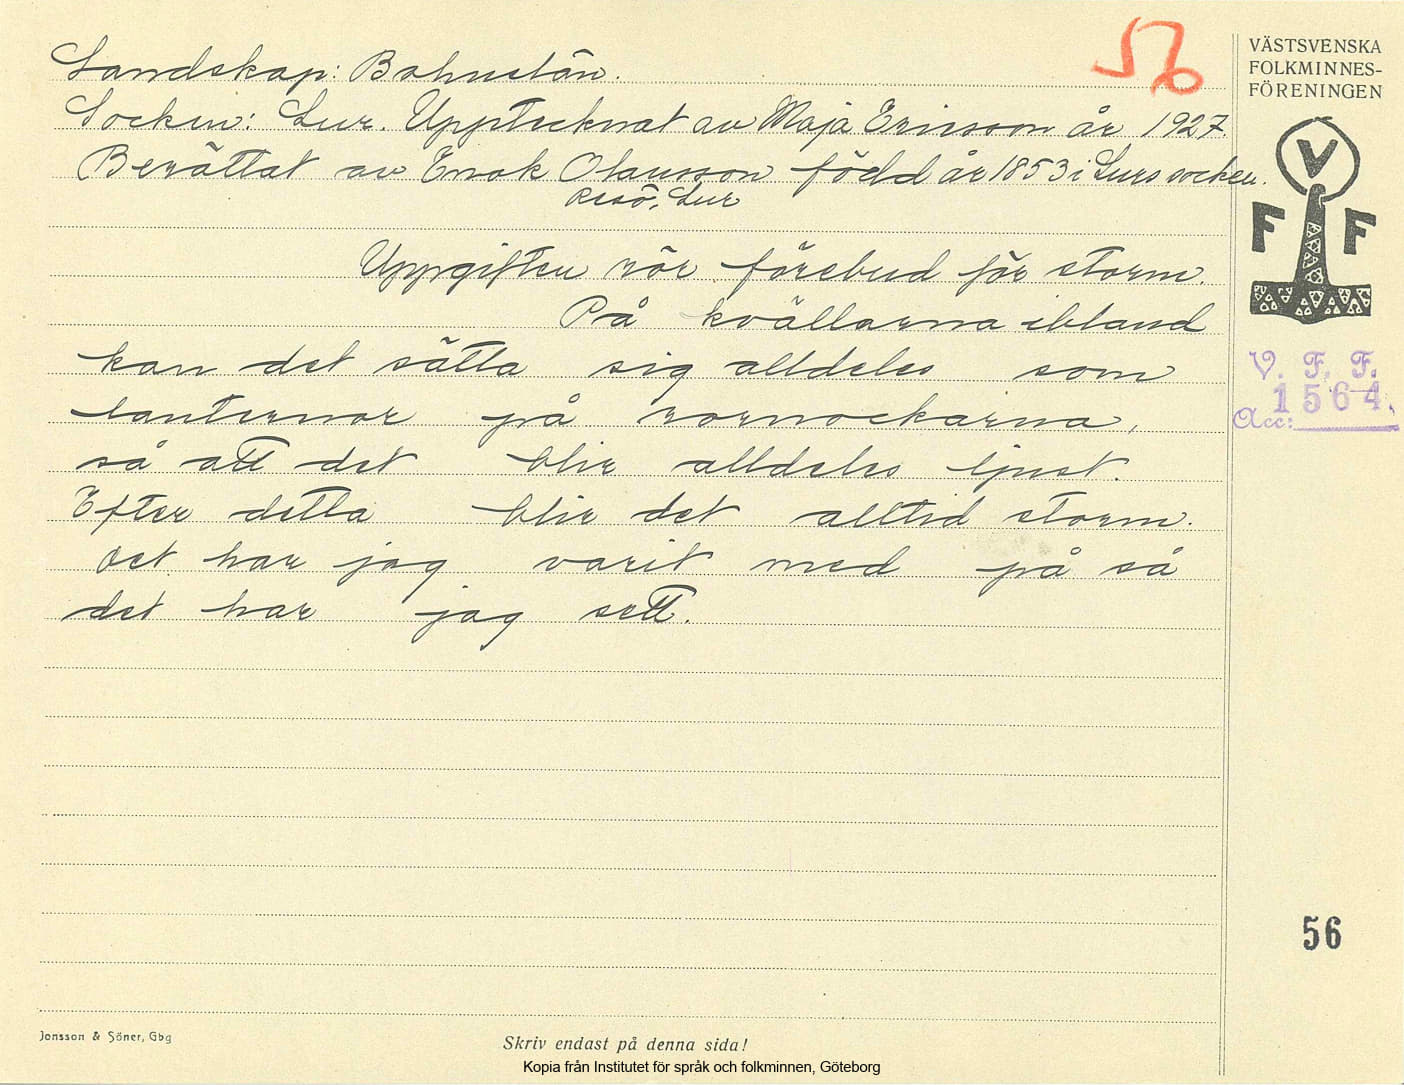 56
Landskap: Bohuslän.
Socken: Lur. Upptecknat av Maja Ericsson år 1927.
Berättat av Enok Olausson född år 1853 i Lurs socken.
Resö, Lur
Uppgiften rör förebud för storm.
På kvällarna ibland
kan det sätta sig alldeles som
lanternor på rornockarna,
så att det blir alldeles ljust.
Efter detta blir det alltid storm.
Det har jag varit med på så
det har jag sett.
VÄSTSVENSKA
FOLKMINNES-
FÖRENINGEN
V
F F
V. F. F.
1564.
Acc:
56
Jonsson & Söner, Gbg
Skriv endast på denna sida!
Kopia från Institutet för språk och folkminnen, Göteborg